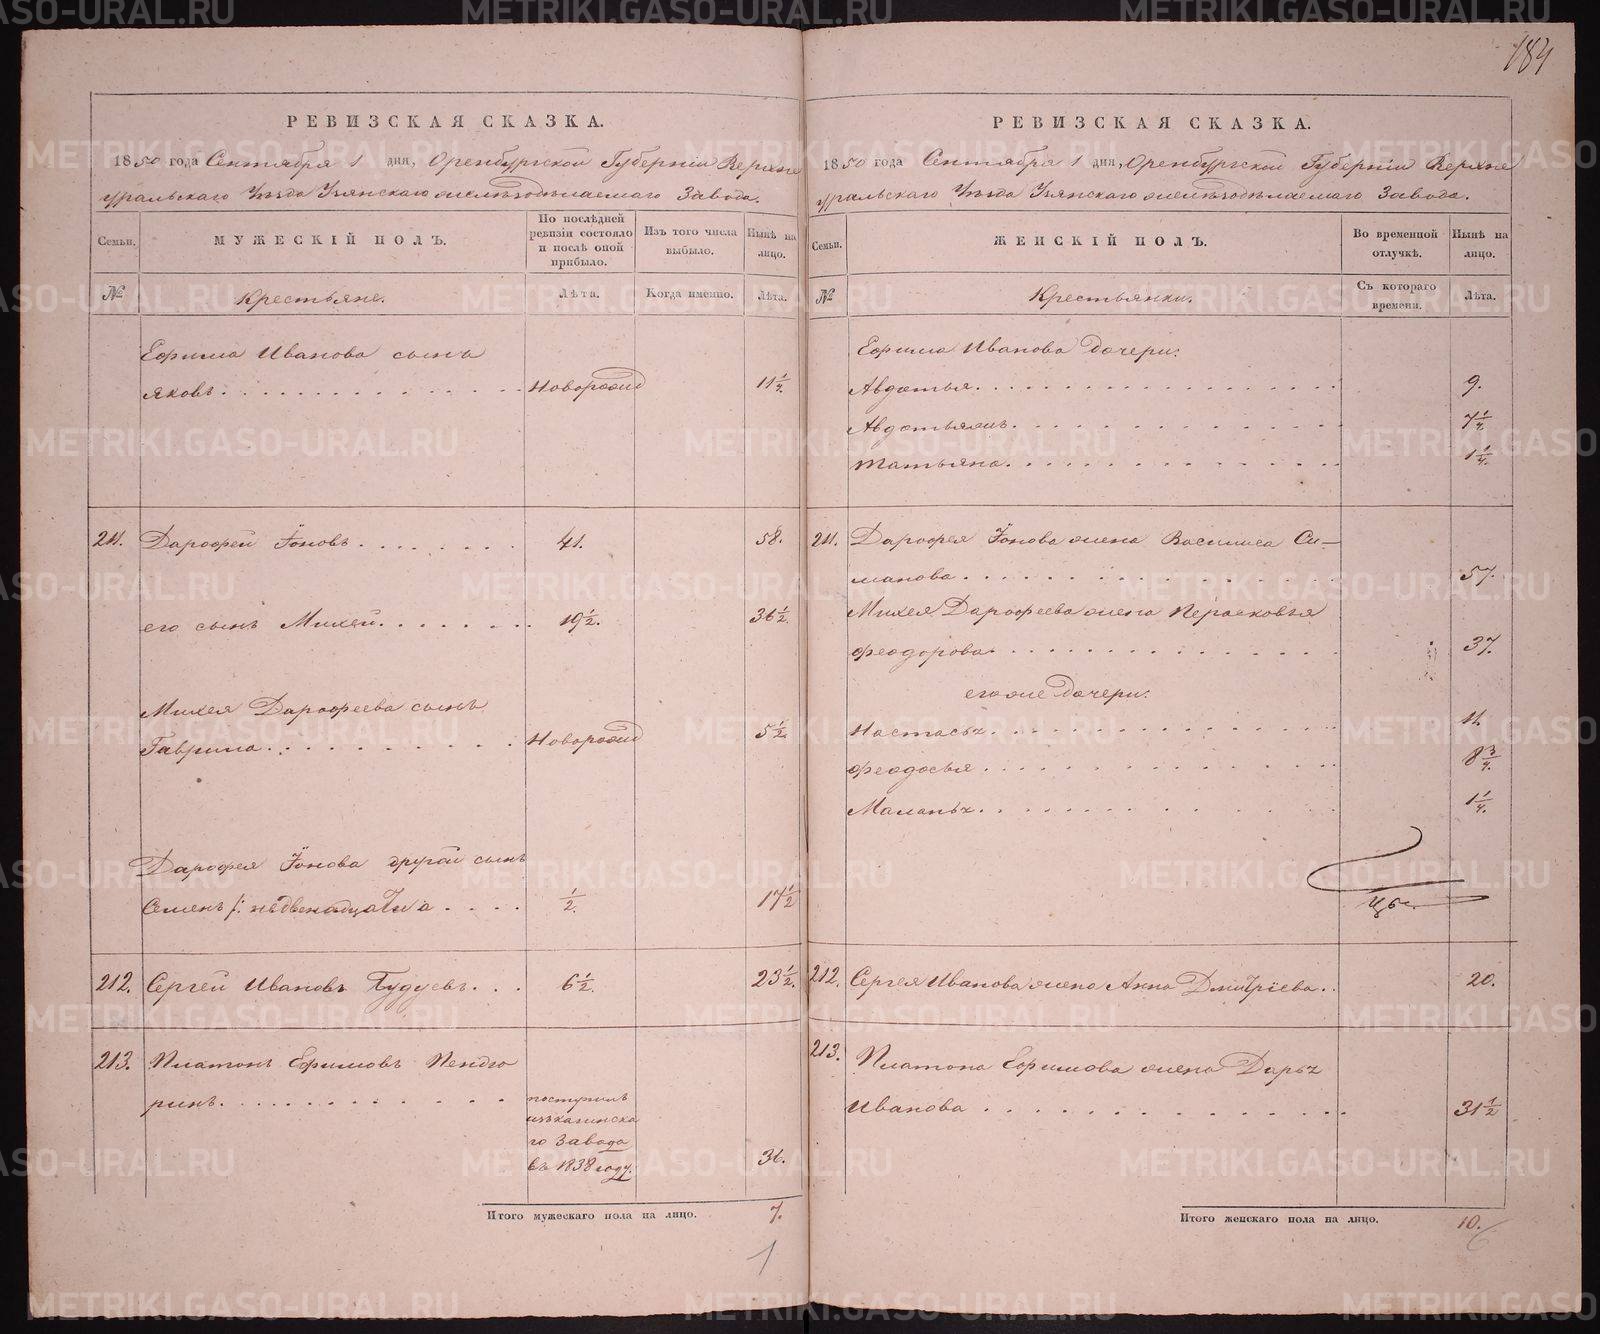 184
РЕВИЗСКАЯ СКАЗКА.
1850 года Сентября 1 дня, Оренбургской Губернiи Верхне
уральскаго Уѣзда Узянскаго желѣзодѣлаемаго Завода.
Семьи.
МУЖЕСКIЙ ПОЛЪ.
По послѣдней ревизiи состояло и послѣ оной прибыло.
Изъ того числа выбыло.
Нынѣ на лицо.
№
Крестьяне.
Лѣта.
Когда именно.
Лѣта.
Ефима Иванова сынъ
Яковъ. Новорожд 11 1/4
211. Дарофей Iоновъ 41. 58.
его сынъ Михей. 19 1/2. 36 1/2.
Михея Дарофеева сынъ
Гаврила. Новорожд 5 1/2
Дарофея Iонова другой сынъ
Семенъ 1/2. 17 1/2
212. Сергей Ивановъ 6 1/2. 23 1/2.
213. Платонъ Ефимовъ
ринъ. поступилъ
изъ кагинска
го Завода
въ 1838 году. 36.
Итого мужескаго пола на лицо. 7.
1
РЕВИЗСКАЯ СКАЗКА.
1850 года Сентября 1 дня, Оренбургской Губернiи Верхне
уральскаго Уѣзда Узянскаго желѣзодѣлаемаго Завода.
Семьи.
ЖЕНСКIЙ ПОЛЪ.
Во временной отлучкѣ.
Нынѣ на лицо.
№
Крестьянки.
Съ котораго времени.
Лѣта.
Ефима Иванова дочери:
Авдотья. 9.
7 1/4.
Татьяна. 1 1/4.
211. Дарофея Iонова жена Василиса Си—
манова. 57.
Михея Дарофеева жена Пераековья
Феодорова. 37.
его же дочери:
Настасья. 11.
Феодосья. 8 3/4.
Маланья. 1 1/4.
212. Сергея Иванова жена Анна Дмитрiева. 20.
213. Платона Ефимова жена Дарья
Иванова 31 1/2
Итого женскаго пола на лицо. 10.
METRIKI.GASO-URAL.RU